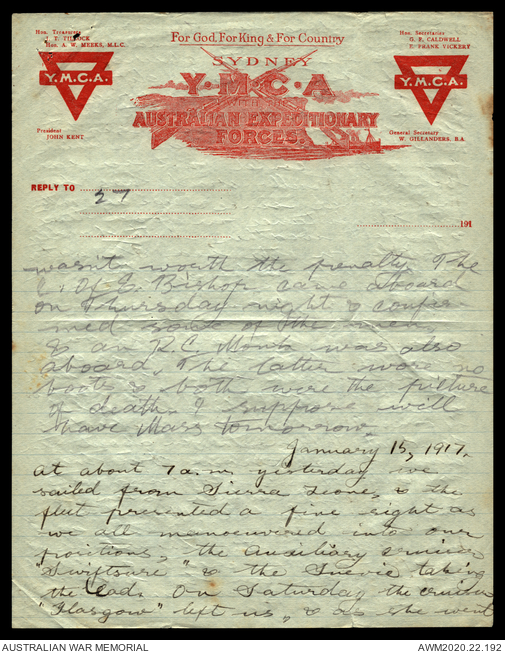 Hon. Treasurers
J. T. TILLOCK
Hon. A. W. MEEKS, M.L.C.
Y.M.C.A.
President
JOHN KENT
For God, For King & For Country
SYDNEY
Y·M·C·A
WITH THE
AUSTRALIAN EXPEDITIONARY
FORCES.
Hon. Secretaries
G. F. CALDWELL
E. FRANK VICKERY
Y.M.C.A.
General Secretary
W. GILLANDERS, B.A.
REPLY TO
27
191
wasn't worth the penalty. The
C. of E. Bishop came aboard
on Thursday night & confir-
med some of the men,
& an R.C. Monk was also
aboard. The latter wore no
boots & both were the picture
of death. I suppose will
have Mass tomorrow.
January 15, 1917.
At about 7 a.m. yesterday we
sailed from Sierra Leone, & the
fleet presented a fine sight as
we all manoeuvered into our
positions, the auxiliary cruiser
"Swiftsure" & the Suevic taking
the lead. On Saturday the cruiser
"Glasgow" left us, & as she went
AUSTRALIAN WAR MEMORIAL
AWM2020.22.192